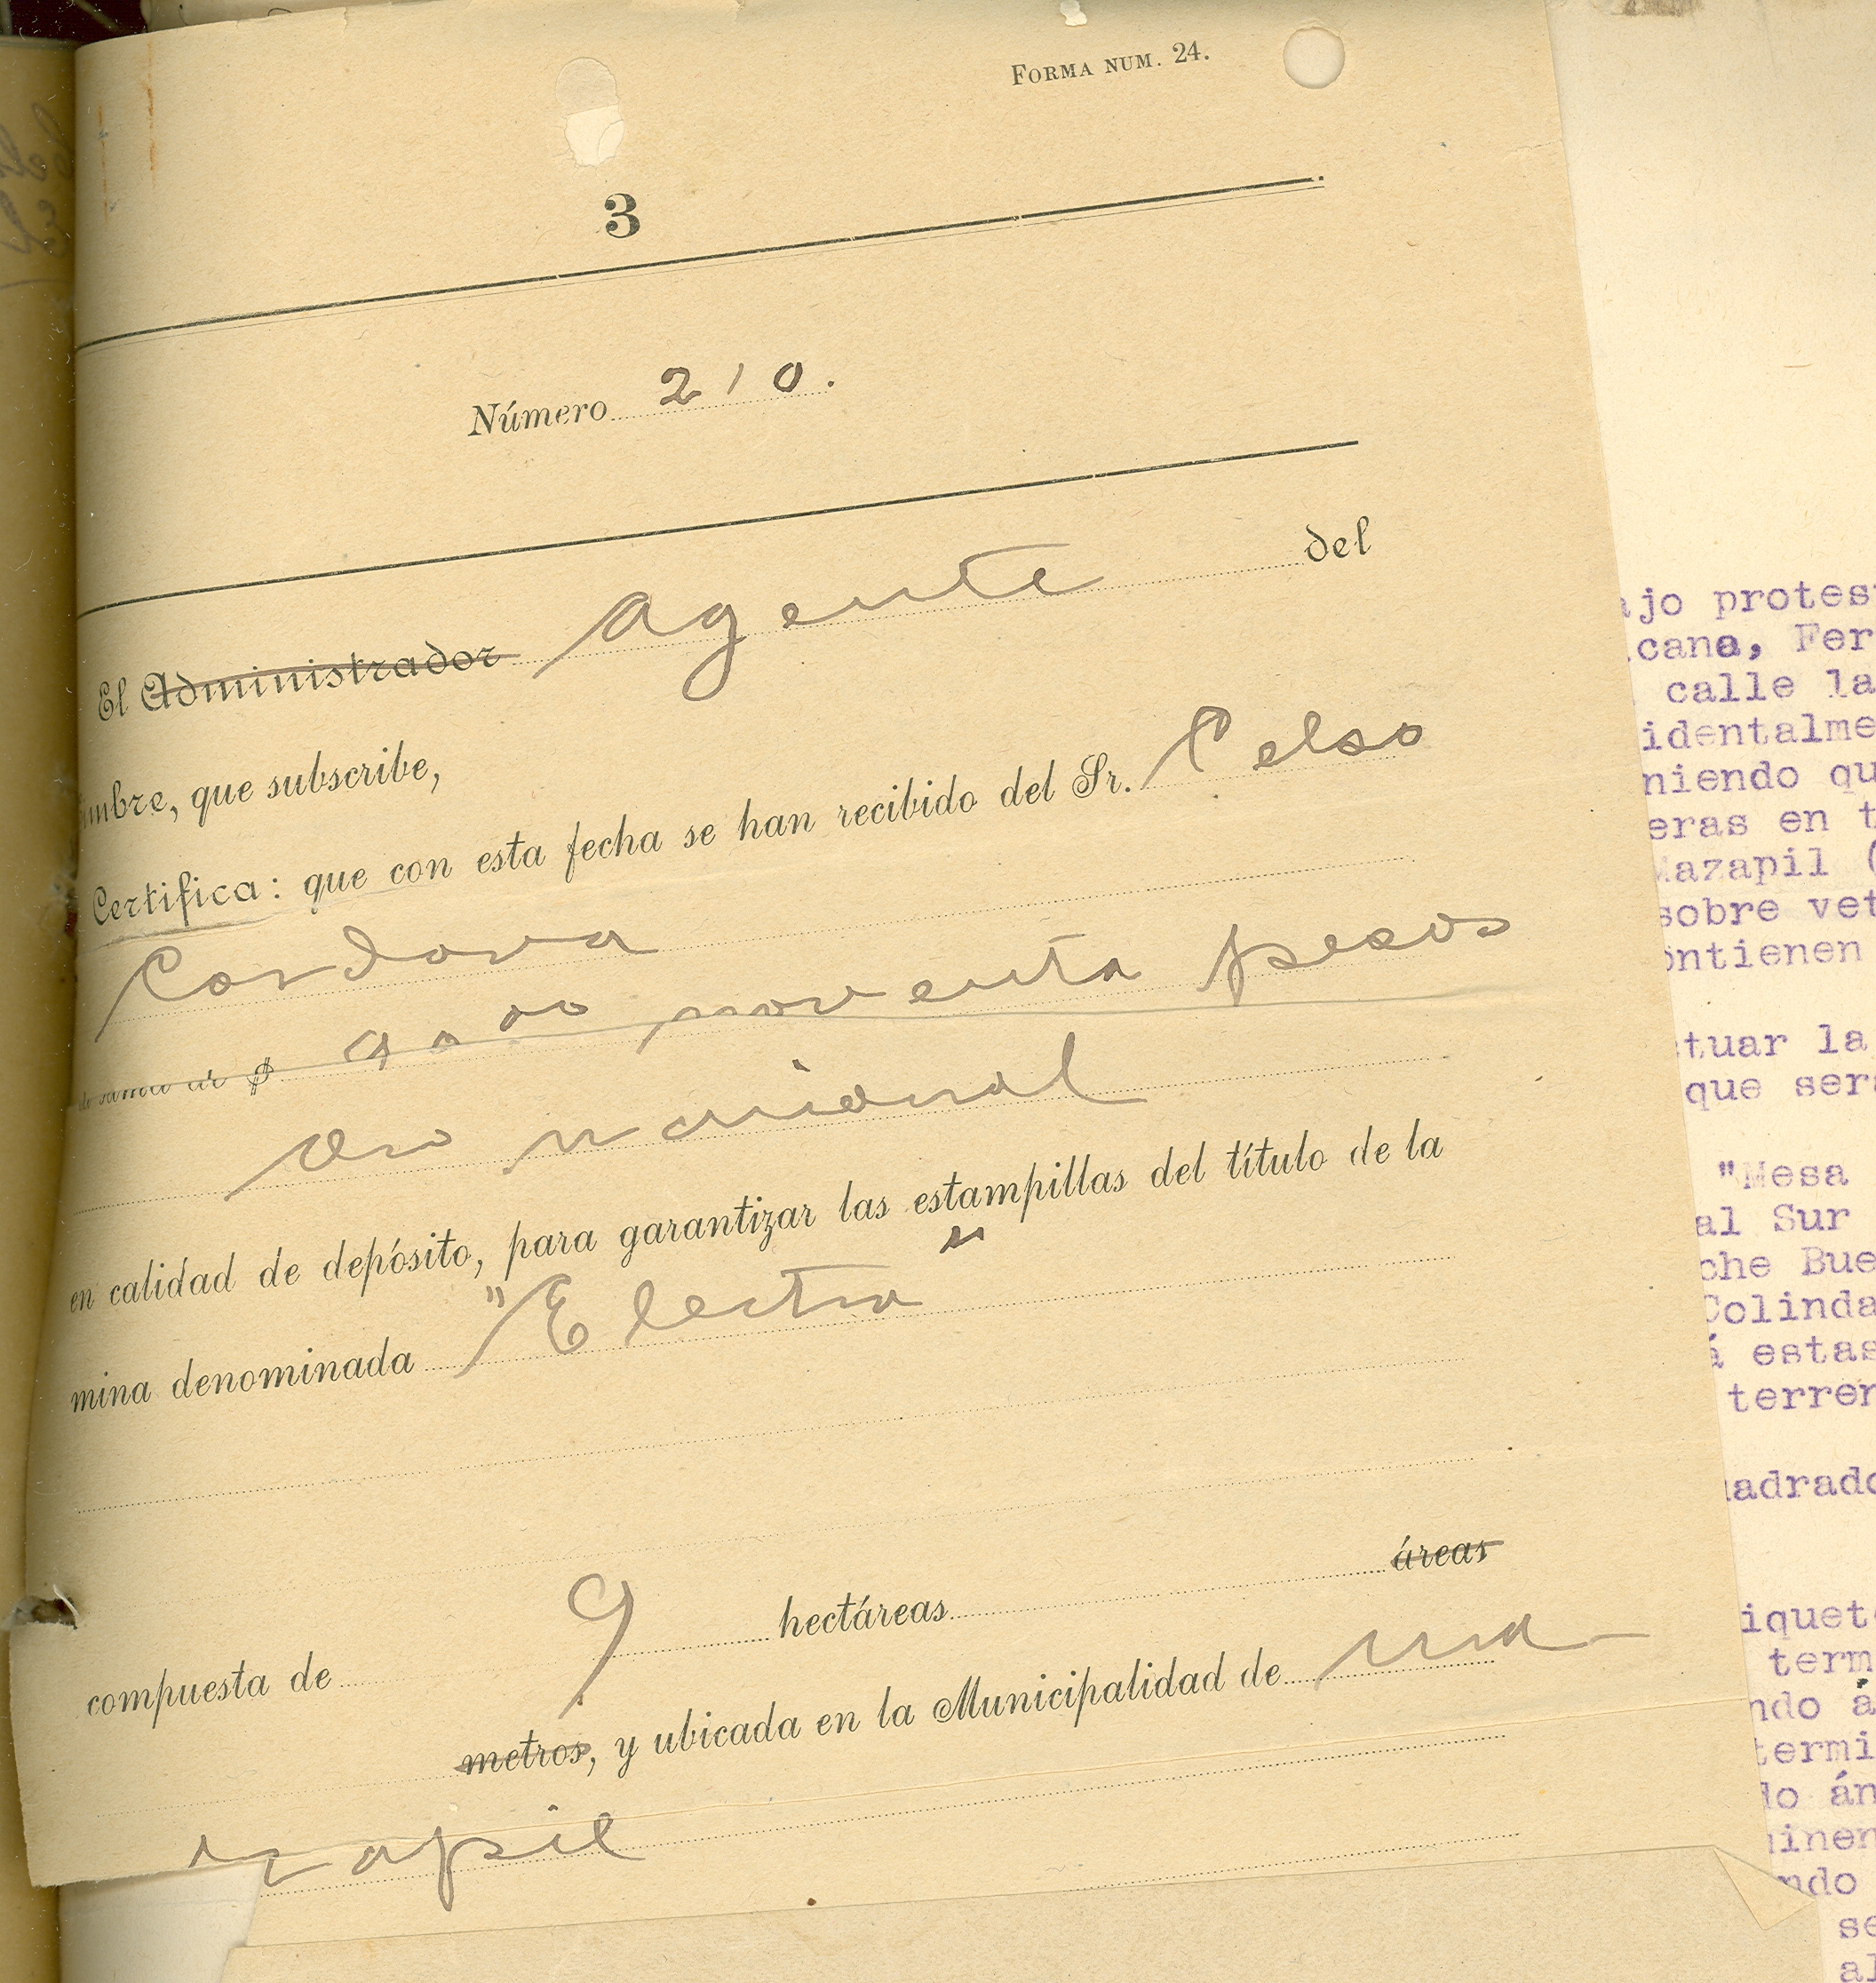 FORMA NUM. 24.
3
Número 210.
El Administrador Agente del
imbre, que subscribe,
Certifica: que con esta fecha se han recibido del Sr. Celso
Cordova
la suma de $ 90 00 noventa pesos
oro nacional
en calidad de depósito, para garantizar las estampillas del título de la
mina denominada "Electra"
compuesta de 9 hectáreas áreas
metros, y ubicada en la Municipalidad de Ma-
zapil
ajo protes
icana, Fer
calle la
identalme
niendo qu
eras en t
Mazapil (
sobre vet
ontienen
tuar la
que ser
"Mesa
al Sur
che Bue
Colinda
á estas
terren
uadrado
iquet
term
ndo á
termi
do án
inen
ndo
se
al